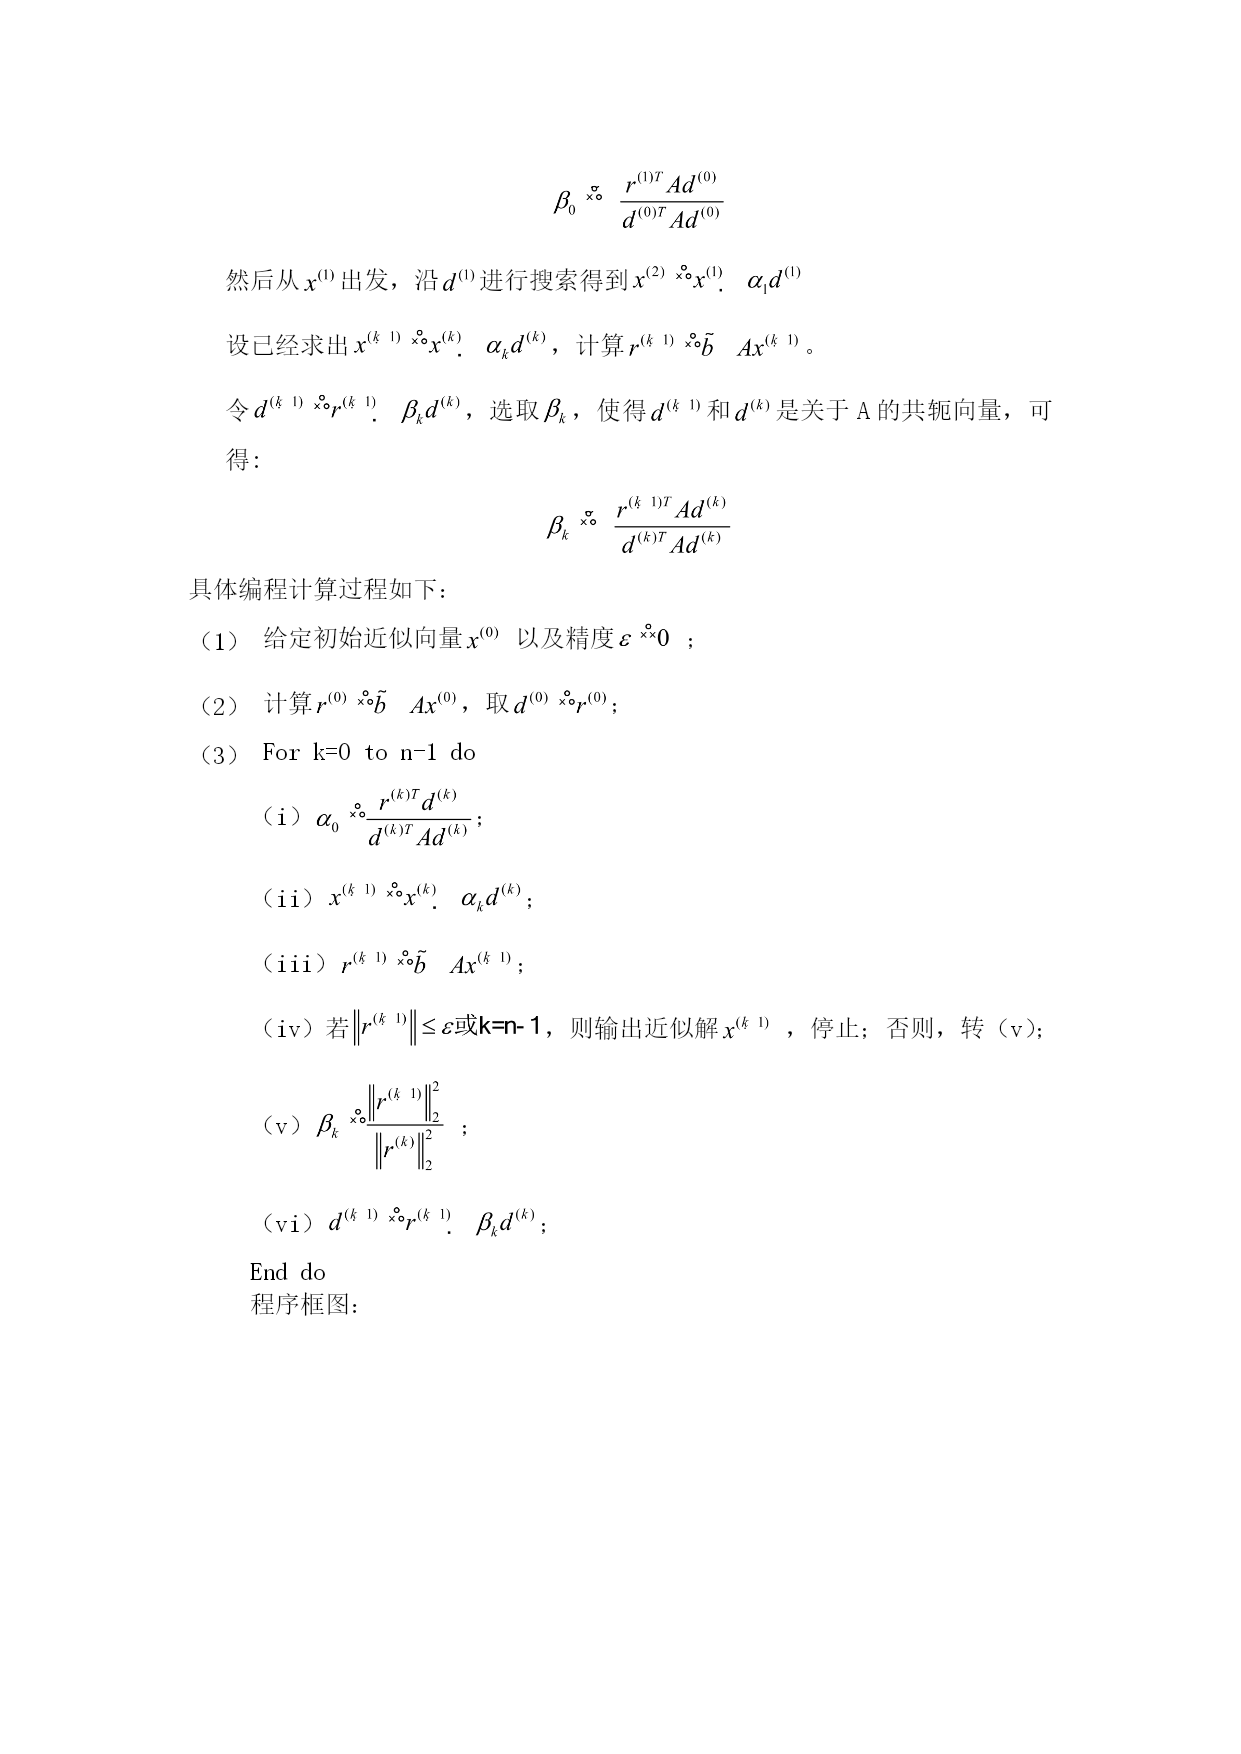 β₀ r⁽¹⁾ᵀAd⁽⁰⁾ / d⁽⁰⁾ᵀAd⁽⁰⁾
然后从 x⁽¹⁾ 出发，沿 d⁽¹⁾ 进行搜索得到 x⁽²⁾ x⁽¹⁾ α₁d⁽¹⁾
设已经求出 x⁽ᵏ ¹⁾ x⁽ᵏ⁾ αₖd⁽ᵏ⁾，计算 r⁽ᵏ ¹⁾ b̃ Ax⁽ᵏ ¹⁾。
令 d⁽ᵏ ¹⁾ r⁽ᵏ ¹⁾ βₖd⁽ᵏ⁾，选取 βₖ，使得 d⁽ᵏ ¹⁾ 和 d⁽ᵏ⁾ 是关于 A 的共轭向量，可
得：
βₖ r⁽ᵏ ¹⁾ᵀAd⁽ᵏ⁾ / d⁽ᵏ⁾ᵀAd⁽ᵏ⁾
具体编程计算过程如下：
（1） 给定初始近似向量 x⁽⁰⁾ 以及精度 ε 0 ；
（2） 计算 r⁽⁰⁾ b̃ Ax⁽⁰⁾，取 d⁽⁰⁾ r⁽⁰⁾；
（3） For k=0 to n-1 do
（i）α₀ r⁽ᵏ⁾ᵀd⁽ᵏ⁾ / d⁽ᵏ⁾ᵀAd⁽ᵏ⁾；
（ii）x⁽ᵏ ¹⁾ x⁽ᵏ⁾ αₖd⁽ᵏ⁾；
（iii）r⁽ᵏ ¹⁾ b̃ Ax⁽ᵏ ¹⁾；
（iv）若‖r⁽ᵏ ¹⁾‖ ≤ ε或k=n-1，则输出近似解 x⁽ᵏ ¹⁾ ，停止；否则，转（v）；
（v）βₖ ‖r⁽ᵏ ¹⁾‖₂² / ‖r⁽ᵏ⁾‖₂² ；
（vi）d⁽ᵏ ¹⁾ r⁽ᵏ ¹⁾ βₖd⁽ᵏ⁾；
End do
程序框图：